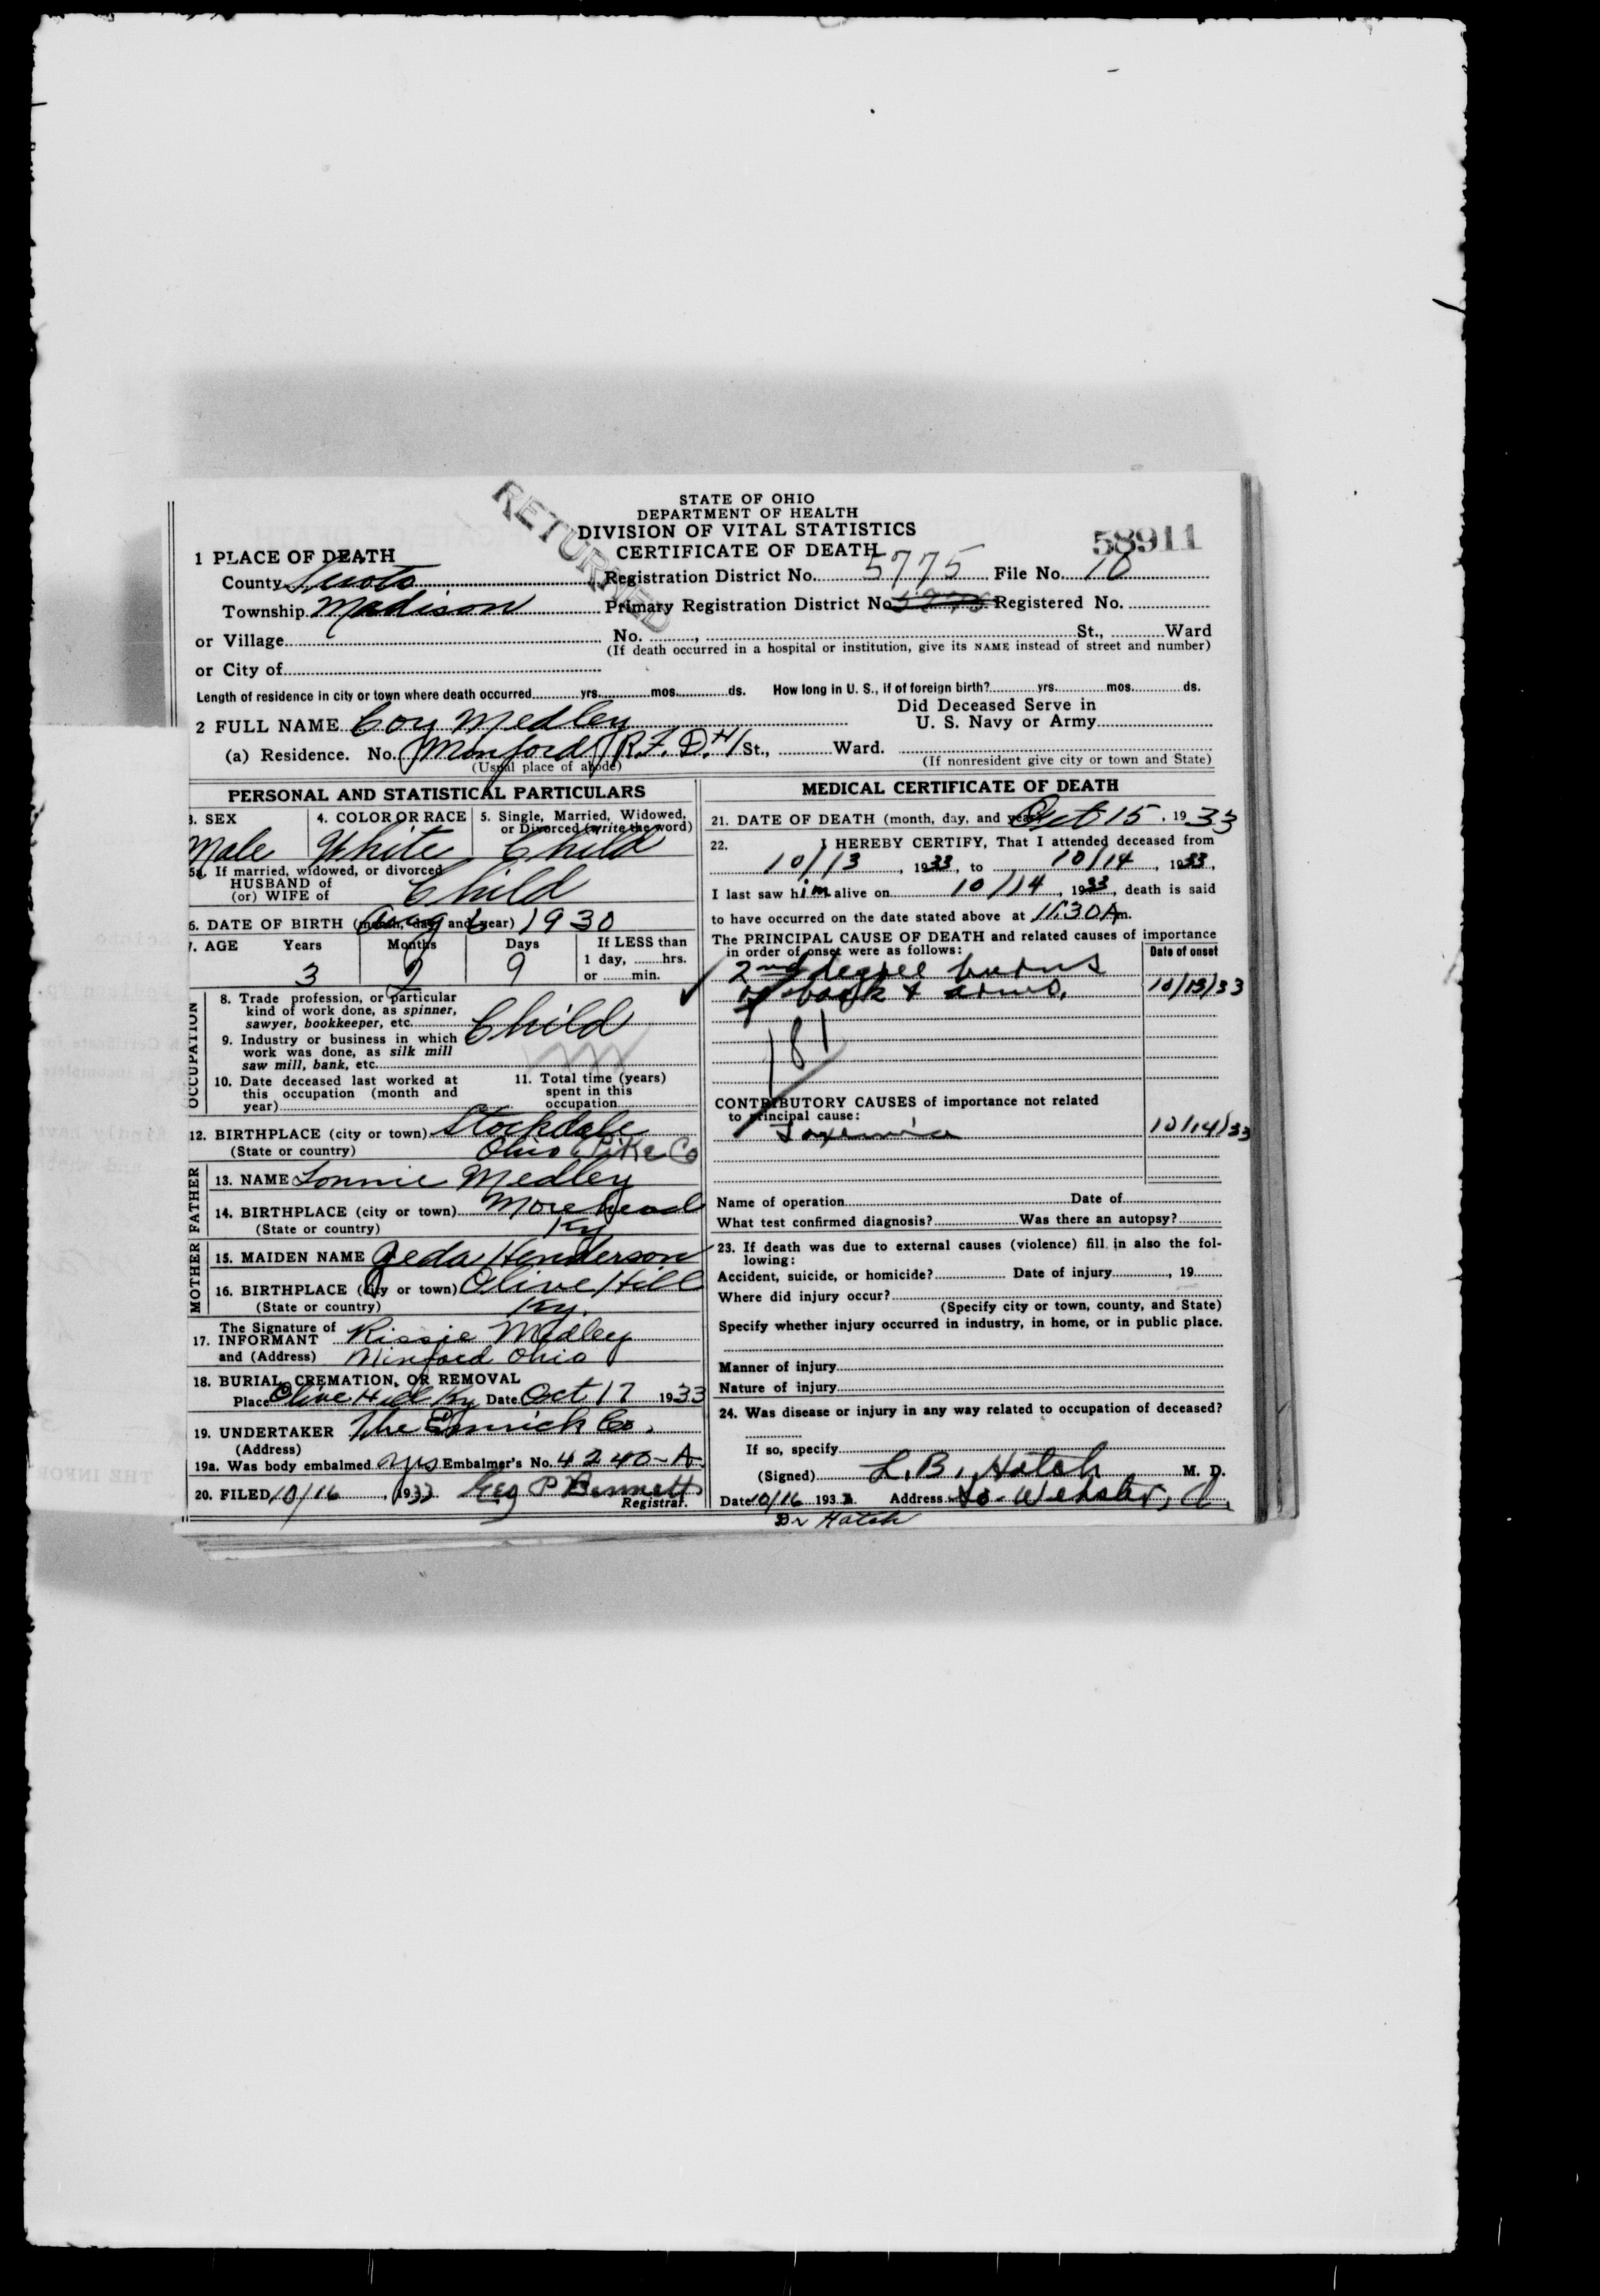 STATE OF OHIO
DEPARTMENT OF HEALTH
DIVISION OF VITAL STATISTICS
CERTIFICATE OF DEATH
RETURNED
58911
1 PLACE OF DEATH
County Scioto Registration District No. 5775 File No. 10
Township Madison Primary Registration District No. Registered No.
or Village No. , St., Ward
(If death occurred in a hospital or institution, give its NAME instead of street and number)
or City of
Length of residence in city or town where death occurred yrs. mos. ds. How long in U. S., if of foreign birth? yrs. mos. ds.
Did Deceased Serve in
2 FULL NAME Coy Medley U. S. Navy or Army
(a) Residence. No. Minford R.F.D. #1 St., Ward.
(Usual place of abode) (If nonresident give city or town and State)
PERSONAL AND STATISTICAL PARTICULARS
3. SEX 4. COLOR OR RACE 5. Single, Married, Widowed,
or Divorced (write the word)
Male White Child
5a. If married, widowed, or divorced
HUSBAND of
(or) WIFE of Child
6. DATE OF BIRTH (month, day and year) Aug 6 1930
7. AGE Years Months Days If LESS than
1 day, hrs.
or min.
3 2 9
OCCUPATION
8. Trade profession, or particular
kind of work done, as spinner,
sawyer, bookkeeper, etc. Child
9. Industry or business in which
work was done, as silk mill
saw mill, bank, etc.
10. Date deceased last worked at
this occupation (month and
year)
11. Total time (years)
spent in this
occupation
12. BIRTHPLACE (city or town) Stockdale
(State or country) Ohio Pike Co
FATHER
13. NAME Lonnie Medley
14. BIRTHPLACE (city or town) Morehead
(State or country) Ky
MOTHER
15. MAIDEN NAME Geda Henderson
16. BIRTHPLACE (city or town) Olive Hill
(State or country) Ky.
The Signature of
17. INFORMANT Rissie Medley
and (Address) Minford Ohio
18. BURIAL, CREMATION, OR REMOVAL
Place Olive Hill Ky Date Oct 17 1933
19. UNDERTAKER The Emrick Co.
(Address)
19a. Was body embalmed yes Embalmer's No. 4240-A
20. FILED 10/16, 1933 Geo P Bennett
Registrar.
MEDICAL CERTIFICATE OF DEATH
21. DATE OF DEATH (month, day, and year) Oct 15, 1933
22. I HEREBY CERTIFY, That I attended deceased from
10/13, 1933, to 10/14, 1933,
I last saw him alive on 10/14, 1933, death is said
to have occurred on the date stated above at 11:30 A m.
The PRINCIPAL CAUSE OF DEATH and related causes of importance
in order of onset were as follows: Date of onset
2nd degree burns
of back & arms. 10/13/33
181
CONTRIBUTORY CAUSES of importance not related
to principal cause:
Toxemia 10/14/33
Name of operation Date of
What test confirmed diagnosis? Was there an autopsy?
23. If death was due to external causes (violence) fill in also the fol-
lowing:
Accident, suicide, or homicide? Date of injury , 19
Where did injury occur?
(Specify city or town, county, and State)
Specify whether injury occurred in industry, in home, or in public place.
Manner of injury
Nature of injury
24. Was disease or injury in any way related to occupation of deceased?
If so, specify
(Signed) L. B. Hatch M. D.
Date 10/16 1933 Address So. Webster, O.
Dr Hatch